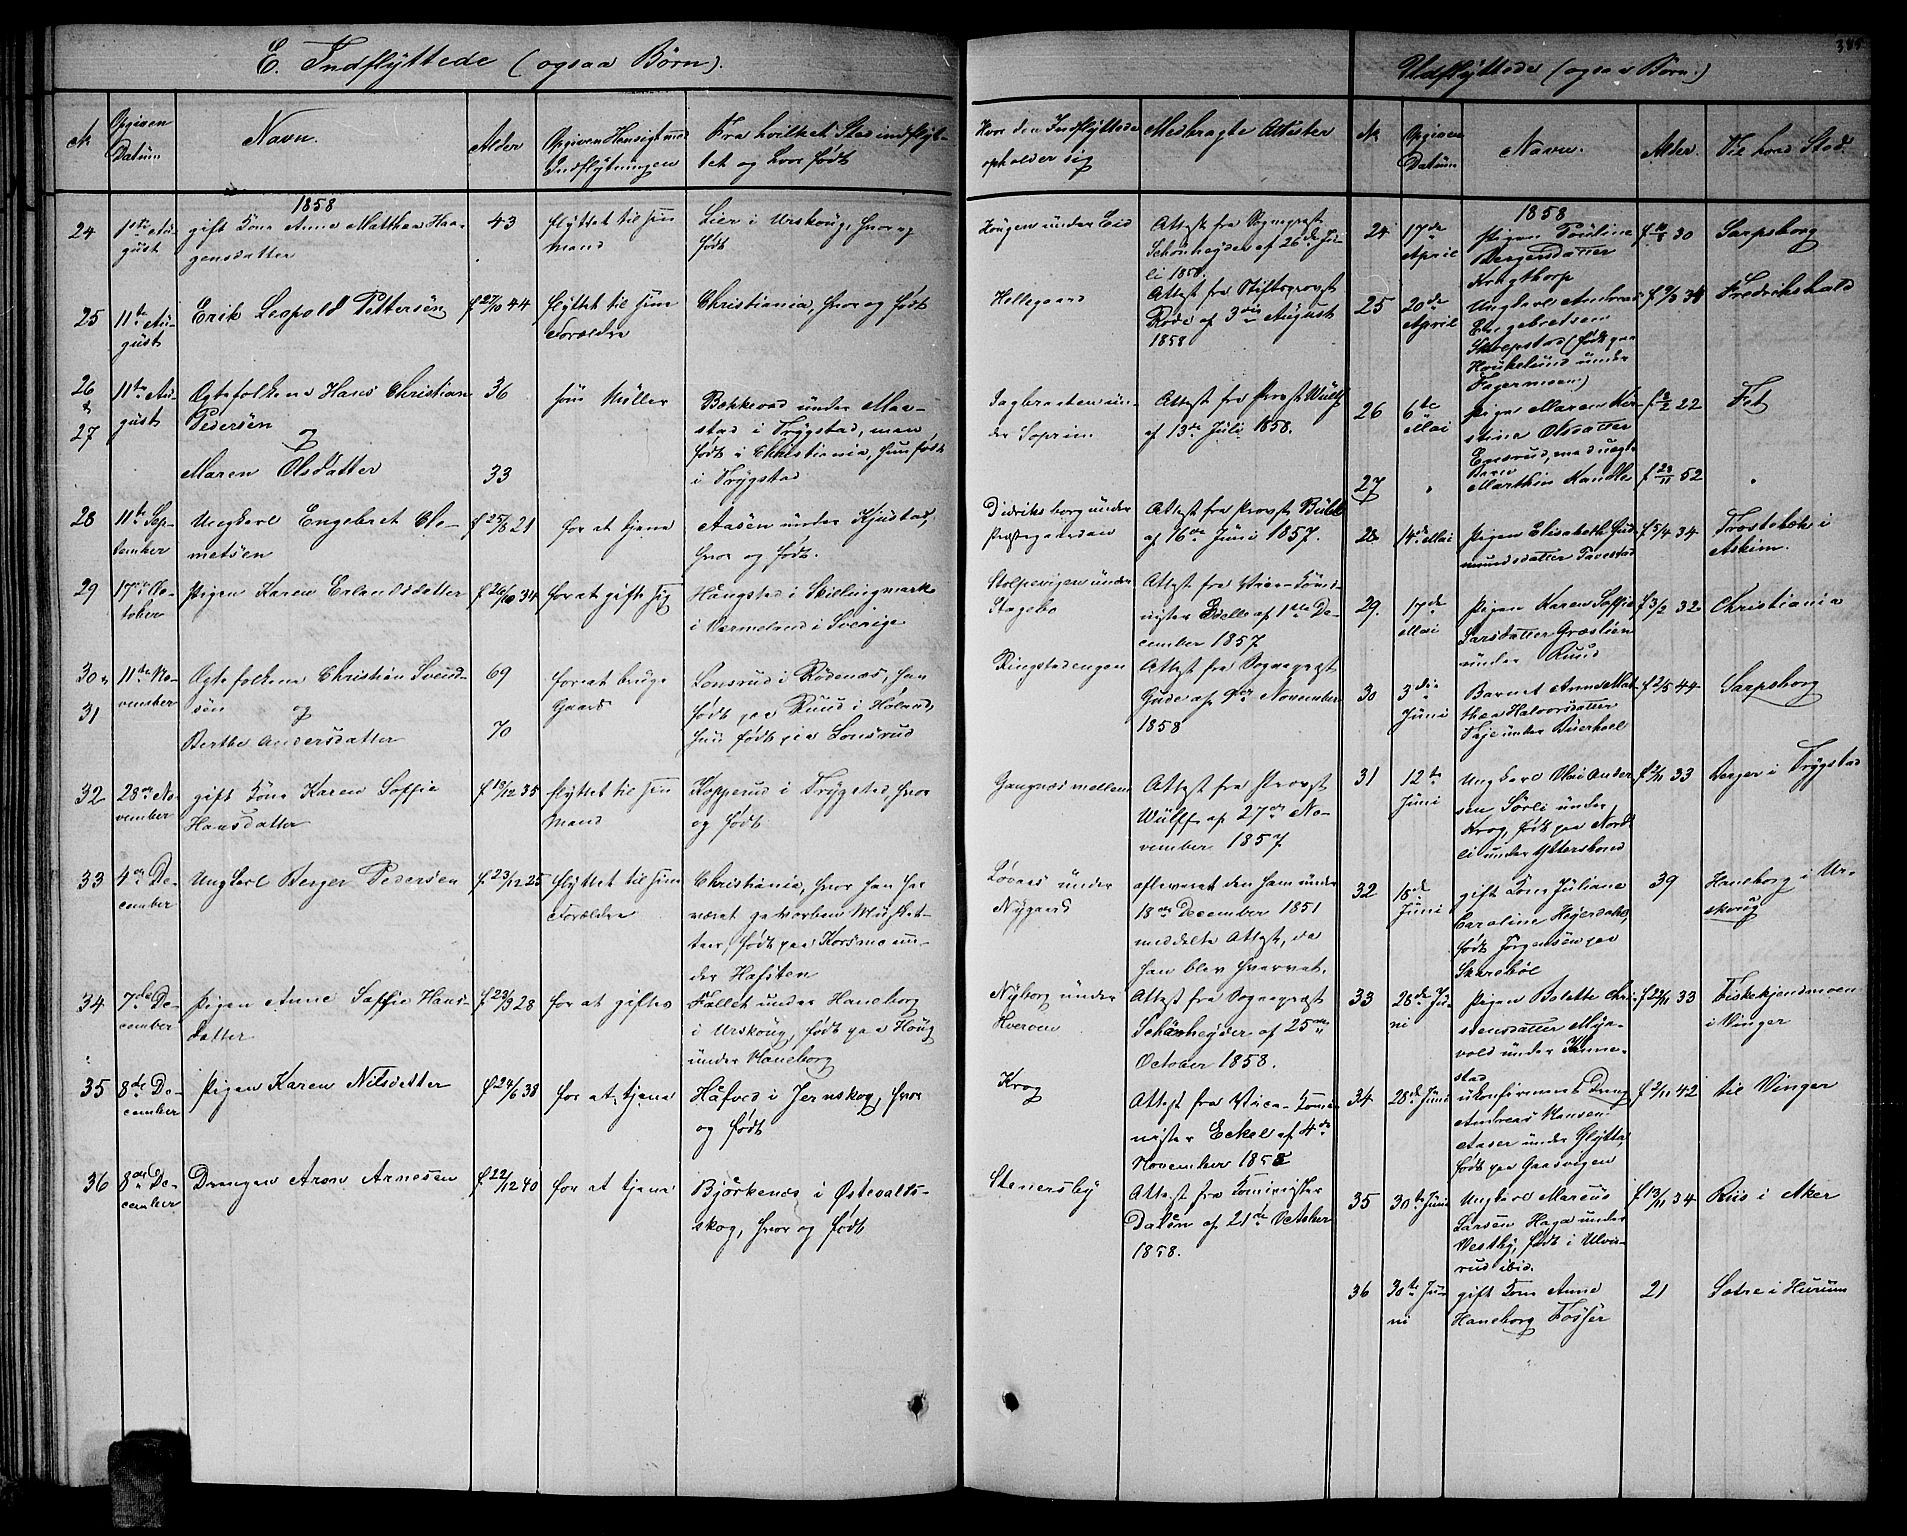 E. Indflyttede (ogsaa Børn).
No
Opgiven
Datum
Navn.
Alder
Opgiven Hensigt med
Indflytningen
Fra hvilket Sted indflyt-
tet og hvor født
1858
24
1ste Au-
gust
gift Kone Anne Matthea Haa-
gensdatter
43
flyttet til sin
Mand
Lier i Urskoug, hvor og
født
25
11te Au-
gust
Erik Leopold Pettersen
f 27/10 44
flyttet til sine
Forældre
Christiania, hvor og født
26
&
27
11te Au-
gust
Ægtefolkene Hans Christian
Pedersen
og
Maren Olsdatter
36
33
som Møller
Bækkevad under Maa-
stad i Trygstad, man
født i Christiania, hun født
i Trygstad
28
11te Sep-
tember
Ungkarl Engebret Cle-
metsen
f 25/8 21
for at tjene
Aasen under Kjustad,
hvor og født.
29
17de Oc-
tober
Pigen Karen Erlandsdatter
f 26/10 34
for at gifte sig
Haugstad i Skillingmark
i Vermeland i Sverige
30 &
31
11te No-
vember
Ægtefolkene Christian Svend-
sen og
Berthe Andersdatter
69
70
for at bruge
Gaard
Lonsrud i Rødenæs, han
født paa Ruud i Høland,
hun født paa Lonsrud
32
28de No-
vember
gift Kone Karen Soffie
Hansdatter
f 13/12 35
flyttet til sin
Mand
Kopperud i Trygstad, hvor
og født
33
4de De-
cember
Ungkarl Berger Pedersen
f 23/12 25
flyttet til sine
Forældre
Christiania, hvor han har
været gevorben Musket-
teer, født paa Korsmo un-
der Hafsten
34
7de De-
cember
Pigen Anne Soffie Hans-
datter
f 23/9 28
for at giftes
Fallet under Haneborg
i Urskoug, født paa Houg
under Haneborg
35
8de De-
cember
Pigen Karen Nilsdatter
f 24/6 38
for at tjene
Hafved i Jernskog, hvor
og født
36
8de De-
cember
Drengen Aron Arnesen
f 22/12 40
for at tjene
Bjørkenæs i Østevalts-
skog, hvor og født
Hvor den Indflyttede
opholder sig
Medbragte Attester
Hougen under Eid
Attest fra Sognepræst
Schønheyder af 26de Ju-
li 1858.
Hellegaard
Attest fra Stiftsprovst
Rode af 3die August
1858
Dagbraaten un-
der Soprim
Attest fra Provst Wulff
af 13de Juli 1858.
Didriksborg under
Præstegaarden
Attest fra Provst Bull
af 16de Juni 1857.
Stolpevigen under
Hagebø
Attest fra Vice-Komi-
nister Edelle af 1ste De-
cember 1857
Ringstadengen
Attest fra Sognepræst
Gude af 9de November
1858
Gangnæs mellem
Attest fra Provst
Wulff af 27de No-
vember 1857
Løvaas under
Nygaard
afleveret den ham under
18de December 1851
meddelte Attest, da
han blev hvervet.
Nyborg under
Hverven
Attest fra Sognepræst
Schønheyder af 25de
October 1858.
Krog
Attest fra Vice-Komi-
nister Eckel af 4de
November 1858
Stenersby
Attest fra Kominister
Dalén af 21de October
1858.
Udflyttede (ogsaa Børn.)
No
Opgiven
Datum
Navn.
Alder.
Til hvad Sted.
1858
24
17de
April
Pigen Pouline
Bergersdatter
Krogthorp
30
Sarpsborg
25
20de
April
Ungkarl Andreas
Engebretsen
Skrepstad (født paa
Houkelund under
Fagermoen)
f 9/3 34
Fredrikshald
26
6te
Mai
Pige Maren Kir-
stine Olsdatter
Ensrud, med uægte
Barn
f 2/2 22
Fet
27
"
Marthin Kandler
f 23/11 52
"
28
14de Mai
Pigen Elisabeth Gud-
mundsdatter Tavestad
f 5/4 34
Frøstebæk i
Askim.
29.
17de
Mai
Pigen Karen Soffie
Larsdatter Græslien
under Ruud
f 3/2 32
Christiania
30
3die
Juni
Barnet Anne Mat-
thea Halvorsdatter
Haje under Buerhoel
f 2/5 44
Sarpsborg
31
12te
Juni
Ungkarl Olai Ander-
sen Sørli under
Krog, født paa Nord-
li under Ytterskoud
f 2/11 33
Berger i Trygstad
32
18de
Juni
gift Kone Juliane
Caroline Heyerdahl,
født Jørgensen paa
Skarsbøl
39
Haneborg i Ur-
skoug
33
28de Ju-
ni
Pigen Bolette Chri-
stensdatter Myr-
vold under Kinne-
stad
f 22/11 33
Fiskekjendsmoen
i Vinger
34
28de Juni
ukonfirmeret Dreng
Andreas Hansen
Aaser under Glytta,
født paa Gaasvigen
f 2/11 42
til Vinger
35
30te Juni
Ungkarl Marcus
Larsen Haga under
Vestby, født i Ulve-
rud ibid.
f 13/11 34
Riis i Aker
36
30te Ju-
ni
gift Kone Anne
Haneborg Fosser
21
Sætre i Hurum